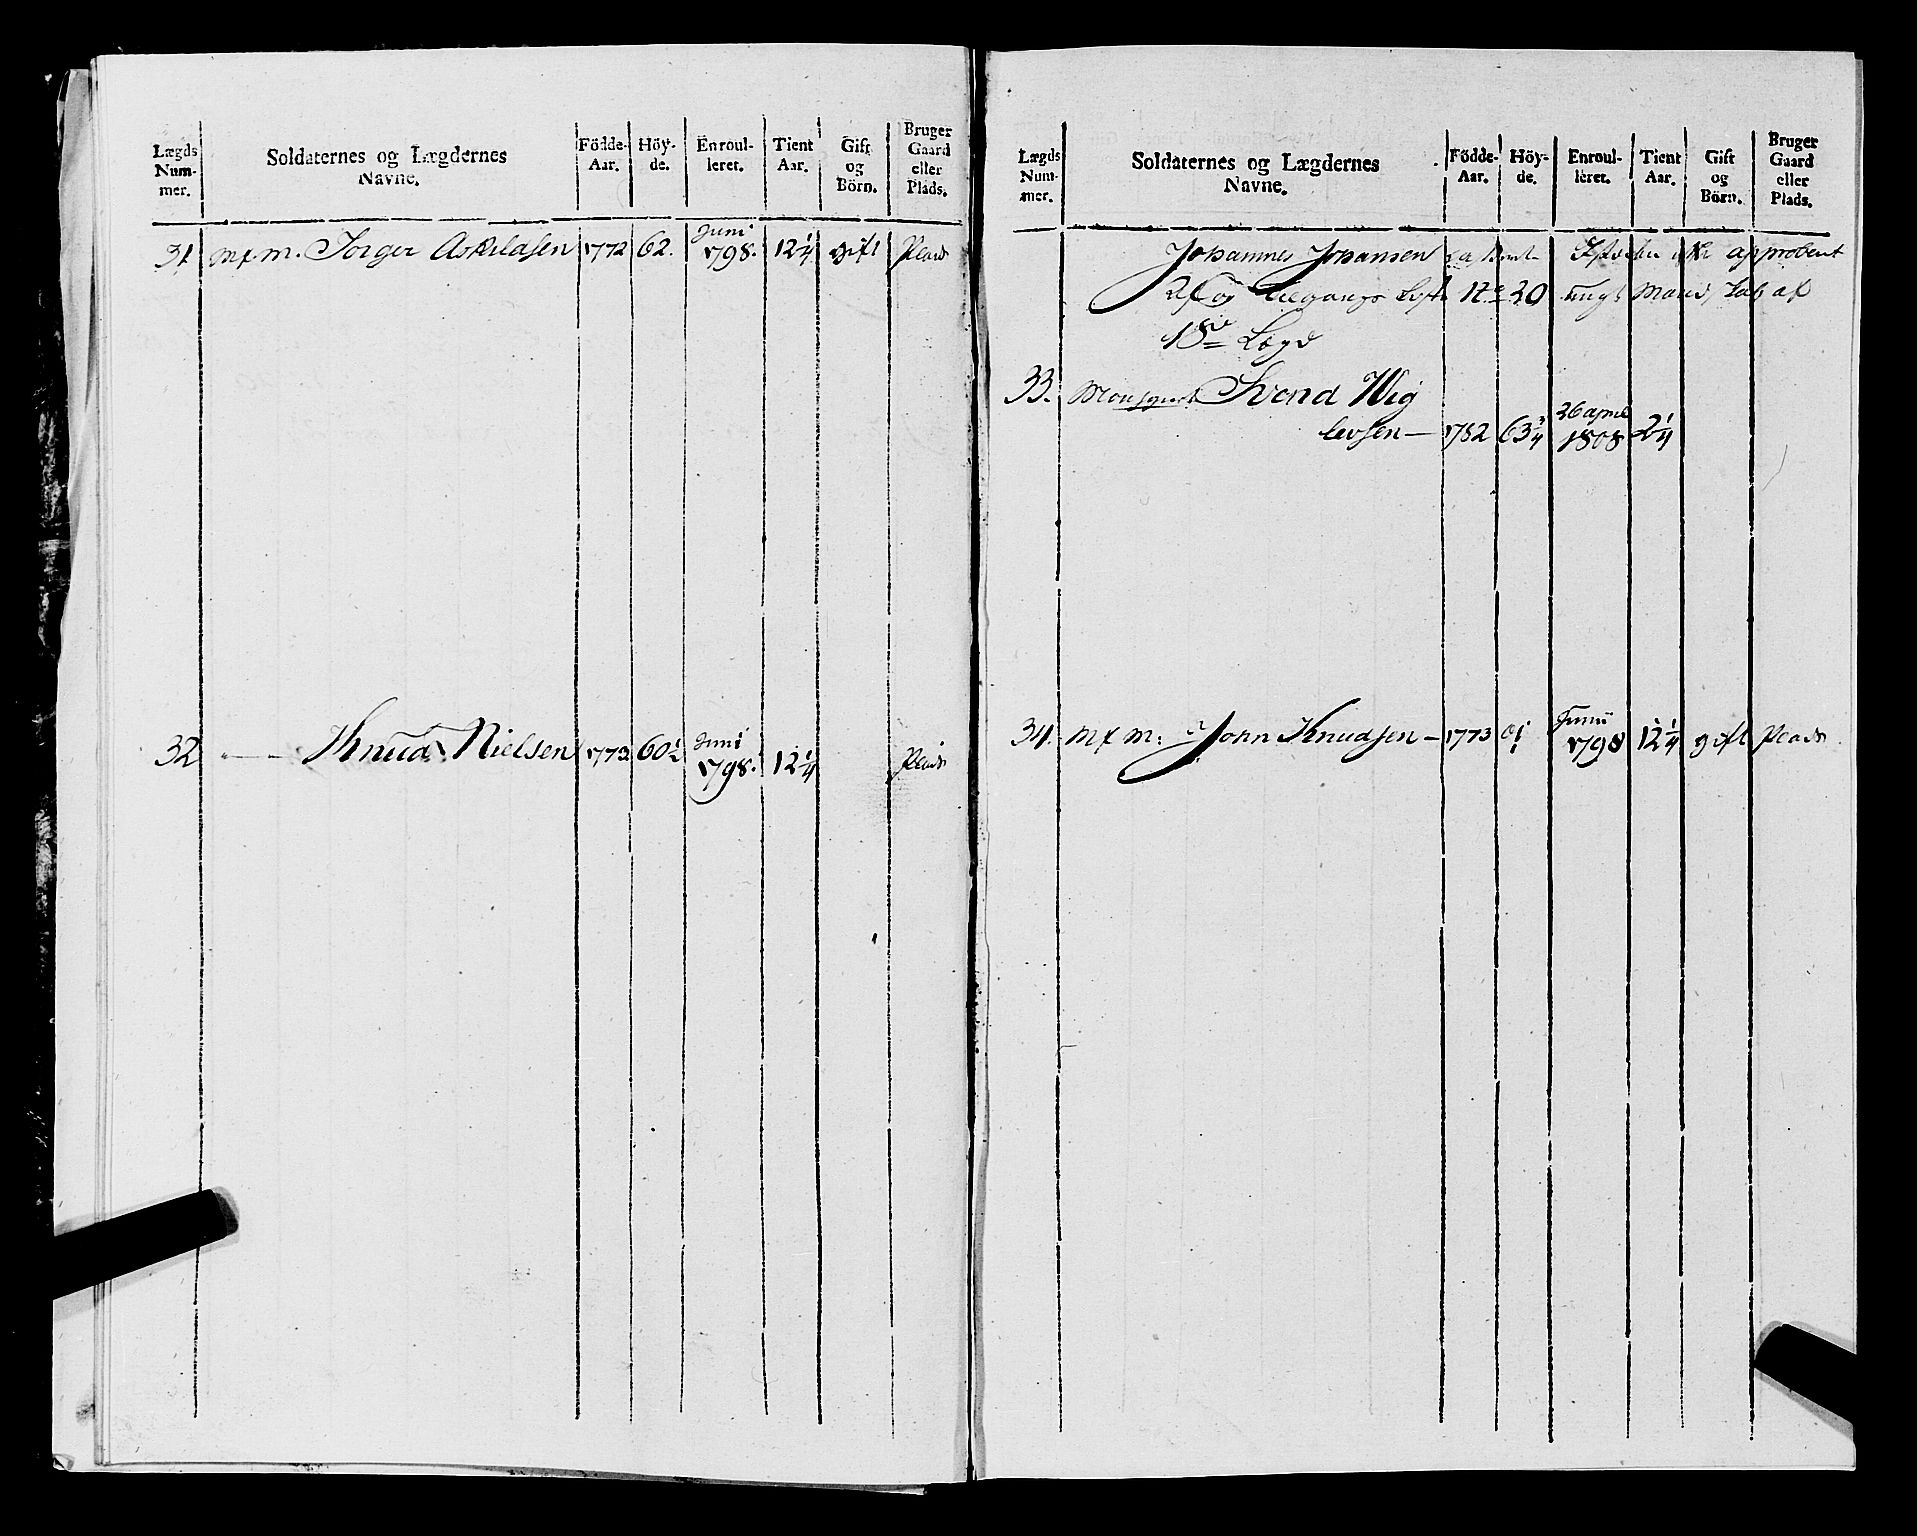 Lægds Num-mer.
Soldaternes og Lægdernes Navne.
Födde-Aar.
Höy-de.
Enroul-leret.
Tient Aar.
Gift og Börn.
Bruger Gaard eller Plads.
31 Mx m. Torger Askildsen 1772 62. Juni 1798. 12 1/4 gift Plads
32 — — Knud Nielsen 1773 60 1/2 Juni 1798. 12 1/4 Plads
Lægds Num-mer.
Soldaternes og Lægdernes Navne.
Födde-Aar.
Höy-de.
Enroul-leret.
Tient Aar.
Gift og Börn.
Bruger Gaard eller Plads.
Johannes Johansen approbert
og 20 ungt Mand, af
18de Lægd
33. Svend Wig
levsen — 1782 63 3/4 26 april 1808 2 1/4
34. Mx m: John Knudsen — 1773 Junii 1798 12 1/4 gift Plads